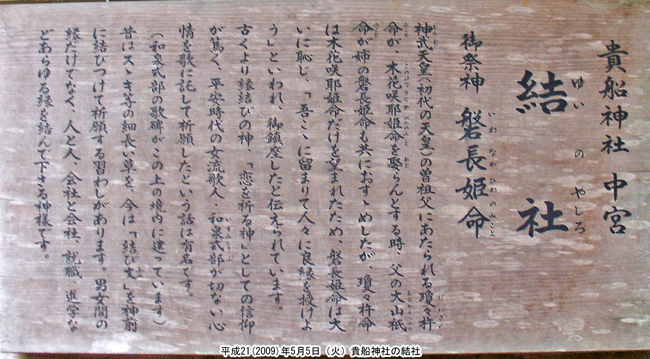 貴船神社 中宮
結社
ゆいのやしろ
御祭神 磐長姫命
いわながひめのみこと
神武天皇（初代の天皇）の曽祖父にあたられる瓊々杵
命が、木花咲耶姫命を娶らんとする時、父の大山祇
命が姉の磐長姫命も共におすゝめしたが、瓊々杵命
は木花咲耶姫命だけを望まれたため、磐長姫命は大
いに恥じ、「吾ここに留まりて人々に良縁を授けよ
う」といわれ、御鎮座したと伝えられています。
古くより縁結びの神、「恋を祈る神」としての信仰
が篤く、平安時代の女流歌人・和泉式部が切ない心
いずみしきぶ
情を歌に託して祈願したという話は有名です。
（和泉式部の歌碑がこの上の境内に建っています）
昔はスゝき等の細長い草を、今は「結び文」を神前
に結びつけて祈願する習わしがあります。男女間の
縁だけでなく、人と人、会社と会社、就職、進学な
どあらゆる縁を結んで下さる神様です。
平成21(2009)年5月5日（火）貴船神社の結社